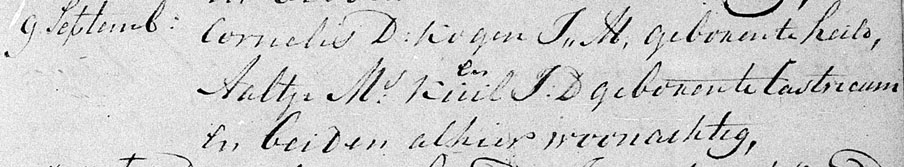 9 Septemb: Cornelis D: Kogen J.. M, geboren te heilo,
en
Aaltje Ms. Kuil J: D geboren te Castricum
En beiden alhier woonachtig,